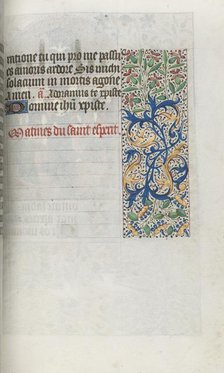 matione tu qui pro me passus
es amoris ardore Sis michi
solacium in mortis agone
amen. a Adoramus te xpiste
Domine ihu xpiste.
Matines du saint esperit